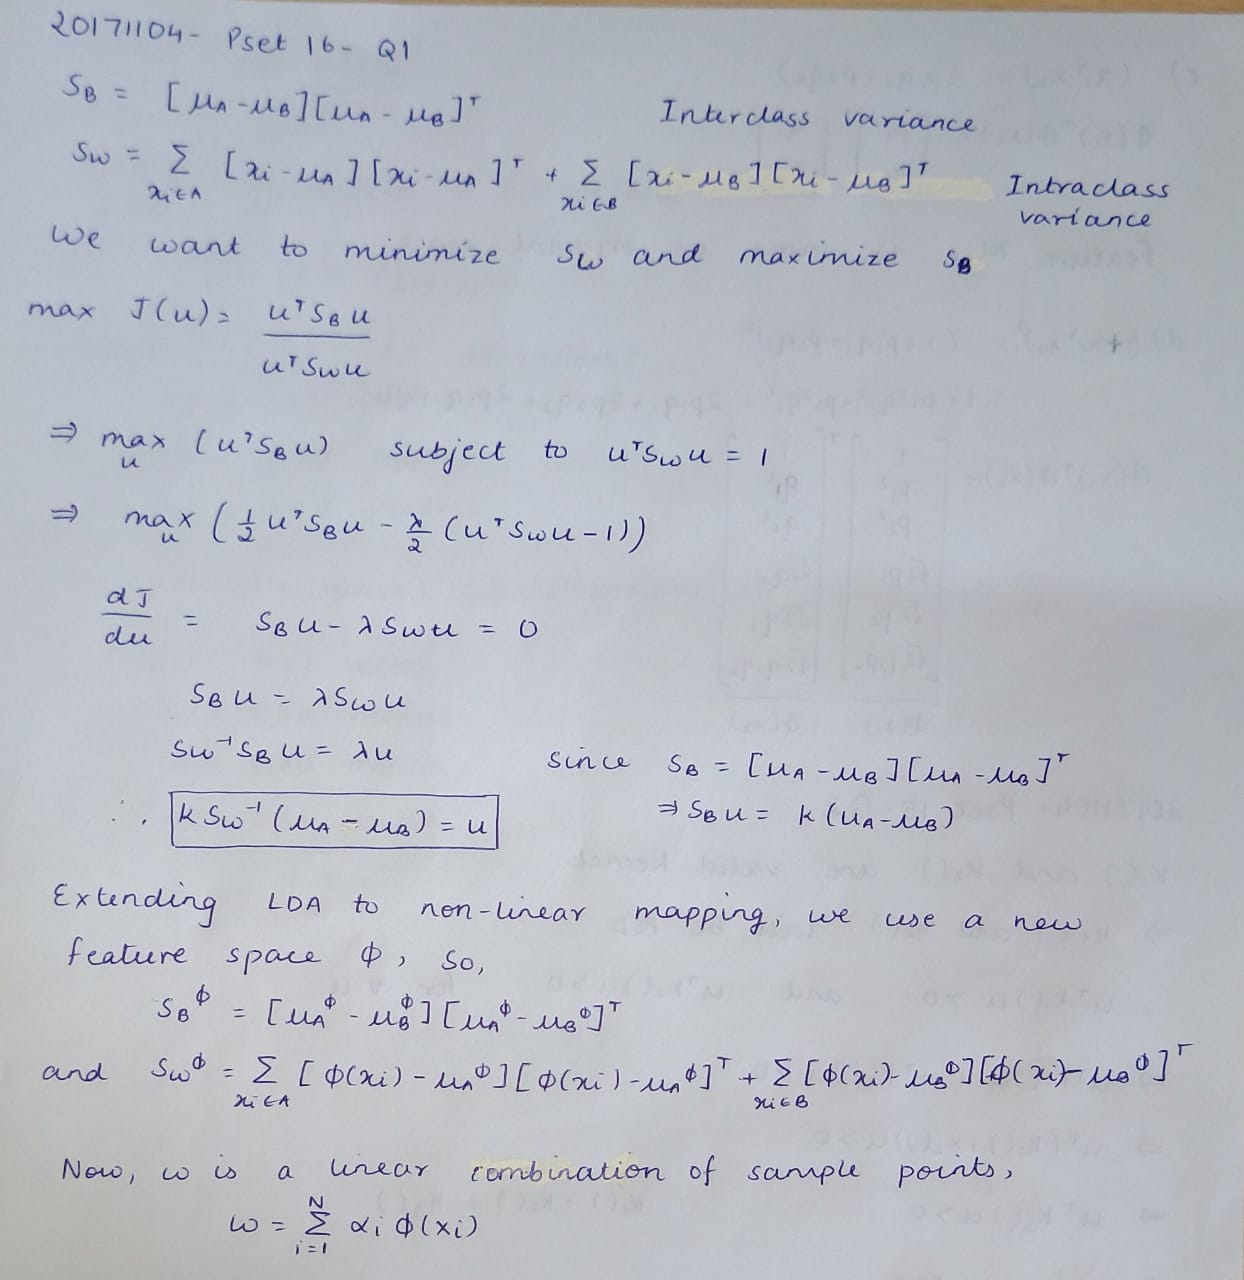 20171104- Pset 16- Q1
S_B = [μ_A-μ_B][μ_A-μ_B]ᵀ Interclass variance
S_W = Σ_{xi∈A} [xi-μ_A][xi-μ_A]ᵀ + Σ_{xi∈B} [xi-μ_B][xi-μ_B]ᵀ Intraclass variance
we want to minimize S_W and maximize S_B
max J(u) = uᵀS_Bu / uᵀS_Wu
⇒ max_u (uᵀS_Bu) subject to uᵀS_Wu = 1
⇒ max_u (½uᵀS_Bu - λ/2 (uᵀS_Wu-1))
dJ/du = S_Bu - λS_Wu = 0
S_Bu = λS_Wu
S_W⁻¹S_Bu = λu since S_B = [μ_A-μ_B][μ_A-μ_B]ᵀ
∴ kS_W⁻¹(μ_A-μ_B) = u ⇒ S_Bu = k(μ_A-μ_B)
Extending LDA to non-linear mapping, we use a new
feature space ϕ, so,
S_B^ϕ = [μ_A^ϕ-μ_B^ϕ][μ_A^ϕ-μ_B^ϕ]ᵀ
and S_W^ϕ = Σ_{xi∈A} [ϕ(xi)-μ_A^ϕ][ϕ(xi)-μ_A^ϕ]ᵀ + Σ_{xi∈B} [ϕ(xi)-μ_B^ϕ][ϕ(xi)-μ_B^ϕ]ᵀ
Now, w is a linear combination of sample points,
w = Σ_{i=1}^N αi ϕ(xi)